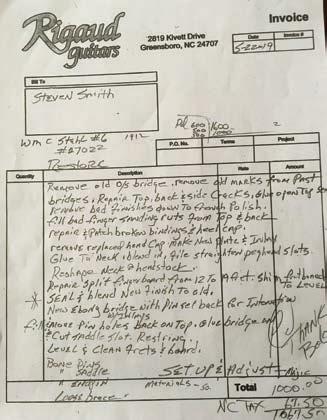 Rigaud
guitars
2819 Kivett Drive
Greensboro, NC 24707
Invoice
Date
Invoice #
5-22-19
Bill To
Steven Smith
Pd 600
500
1600
1000
2
Wm C Stahl #6 1912
#27022
Restore
P.O. No.
Terms
Project
Quantity
Description
Rate
Amount
Remove old O/S bridge, remove old marks from Past
bridges, Repair Top, back & side Cracks, Glue open Top seam
remove bad finishes down To French Polish.
fill bad finger sanding ruts from Top & back
repair & Patch broken bindings & heel cap.
remove replaced hand Cap make New plate & Inlay
Glue To Neck, blend in, file straighten peghead slots.
Reshape Neck & headstock.
Repair Split fingerboard from 12 To
* Seal & blend New finish to old.
New Ebony bridge with Pin set back for Intonation
fill & More pin holes back on Top. Glue bridge on
& Cut saddle slot. Restring.
Level & Clean frets & board.
Bone Pins
" Saddle
" Endpin
Loose brace
SET UP & Adjust - Magic
Materials - 50.
THANK
Total
1000.00
NC TAX
67.50
1067.50